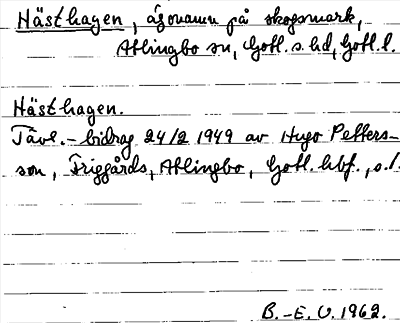 Hästhagen, ägonamn på skogsmark,
Atlingbo sn, Gotl. s. hd, Gotl. l.
Hästhagen.
Tävl.-bidrag 24/2 1949 av Hugo Petters-
son, Friggårds, Atlingbo, Gotl. hbf., s. 1.
B.-E. U. 1962.